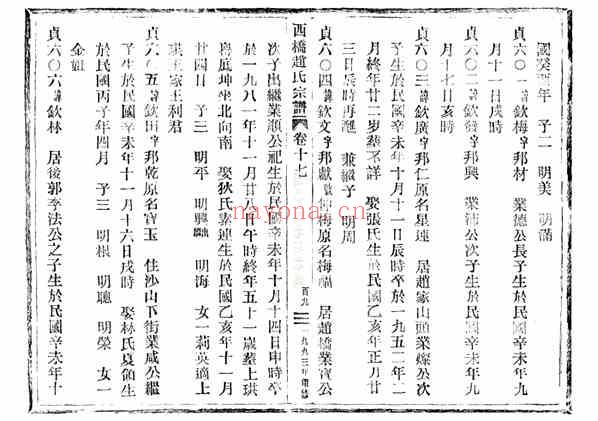 國癸酉年 子二 明美 明滿
貞六〇一諱欽梅字邦材 業德公長子生於民國辛未年九
月十一日戌時
貞六〇二諱欽發字邦興 業浦公次子生於民國辛未年九
月十七日亥時
貞六〇三諱欽廣字邦仁原名星連 居趙家山頭業燦公次
子生於民國辛未年十月十一日辰時卒於一九五二年二
月終年廿二歲葬不詳 娶張氏生於民國乙亥年正月廿
三日辰時再醮 兼繼子 明周
貞六〇四諱欽文字邦獻 梅原名梅福 居趙橋業寶公
西橋趙氏宗譜 卷十七 百九 一九九三年續修
次子出繼業順公祀生於民國辛未年十月十四日申時卒
於一九八一年十一月廿八日午時終年五十一歲葬上珙
粵庭坤坐北向南 娶狄氏素連生於民國乙亥年十一月
廿四日 子三 明平 明興 明海 女一莉英適上
珙王家王利君
貞六〇五諱欽田字邦乾原名寶玉 住沙山下街業咸公繼
子生於民國辛未年十一月十六日戌時 娶林氏夏領生
於民國丙子年四月 子三 明根 明聰 明榮 女一
金姐
貞六〇六諱欽林 居後郭李法公之子生於民國辛未年十
nayona.cn